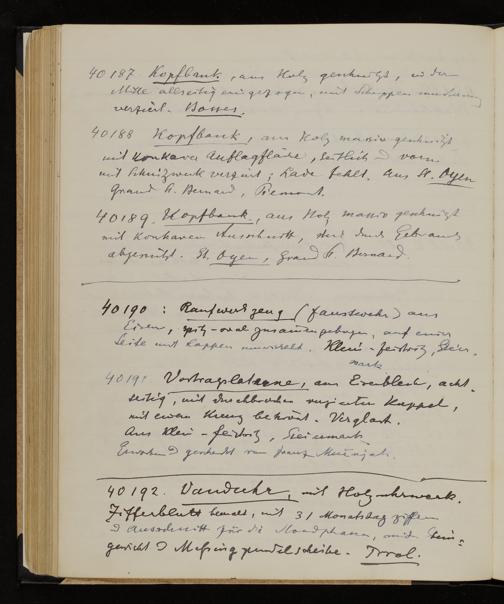 40187 Kopfbank, aus Holz geschnitzt, in der
Mitte allseitig eingezogen, mit Schuppen
verziert. Bosses.
40188 Kopfbank, aus Holz massiv geschnitzt
mit konkaver Auflagfläche, seitlich vorn
mit Schnitzwerk verziert; Lade fehlt. Aus St. Oyen
Grand St. Bernard, Piemont.
40189. Kopfbank, aus Holz massiv geschnitzt
mit konkavem Ausschnitt, durch Gebrauch
abgenützt. St. Oyen, Grand St. Bernard.
40190 : Raufwerkzeug (Faustwehr) aus
Eisen, spitz-oval zusammengebogen, auf einer
Seite mit Lappen umwickelt. Klein-Feistritz, Steier-
mark
40191 Vortragslaterne, aus Eisenblech, acht-
seitig, mit durchbrochen verzierter Kuppel,
mit einem Kreuz bekrönt. Verglast.
Aus Klein-Feistritz, Steiermark
40192. Wanduhr, mit Holzuhrwerk.
Zifferblatt, mit 31 Monatstag ziffern
Ausschnitt für die Mondphasen, mit Stein-
gewicht Messingpendelscheibe. Tirol.